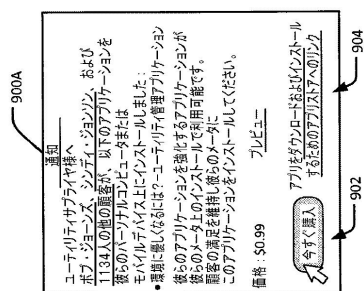 900A
通知
ユーティリティサプライヤ様へ
ボブ・ジョーンズ、シンディ・ジョンソン、および
1134人の他の顧客が、以下のアプリケーションを
彼らのパーソナルコンピュータまたは
モバイルデバイス上にインストールしました：
•環境に優しくなるには？−ユーティリティ管理アプリケーション
彼らのアプリケーションを強化するアプリケーションが
彼らのメータ上のインストールで利用可能です。
顧客の満足を維持し彼らのメータに
このアプリケーションをインストールしてください。
価格：$0.99
プレビュー
今すぐ購入
アプリをダウンロードおよびインストール
するためのアプリストアへのリンク
902
904